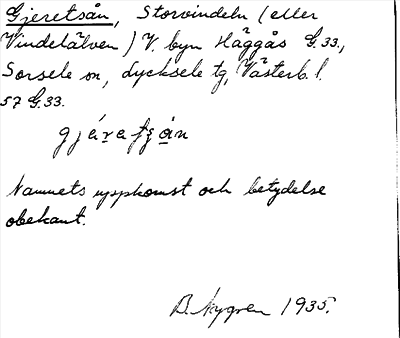 Gjeretsån, Storvindeln (eller
Vindelälven) V. byn Häggås G.33.,
Sorsele sn, Lycksele tg, Västerb. l.
57 G.33.
Namnets uppkomst och betydelse
obekant.
B. Nygren 1935.